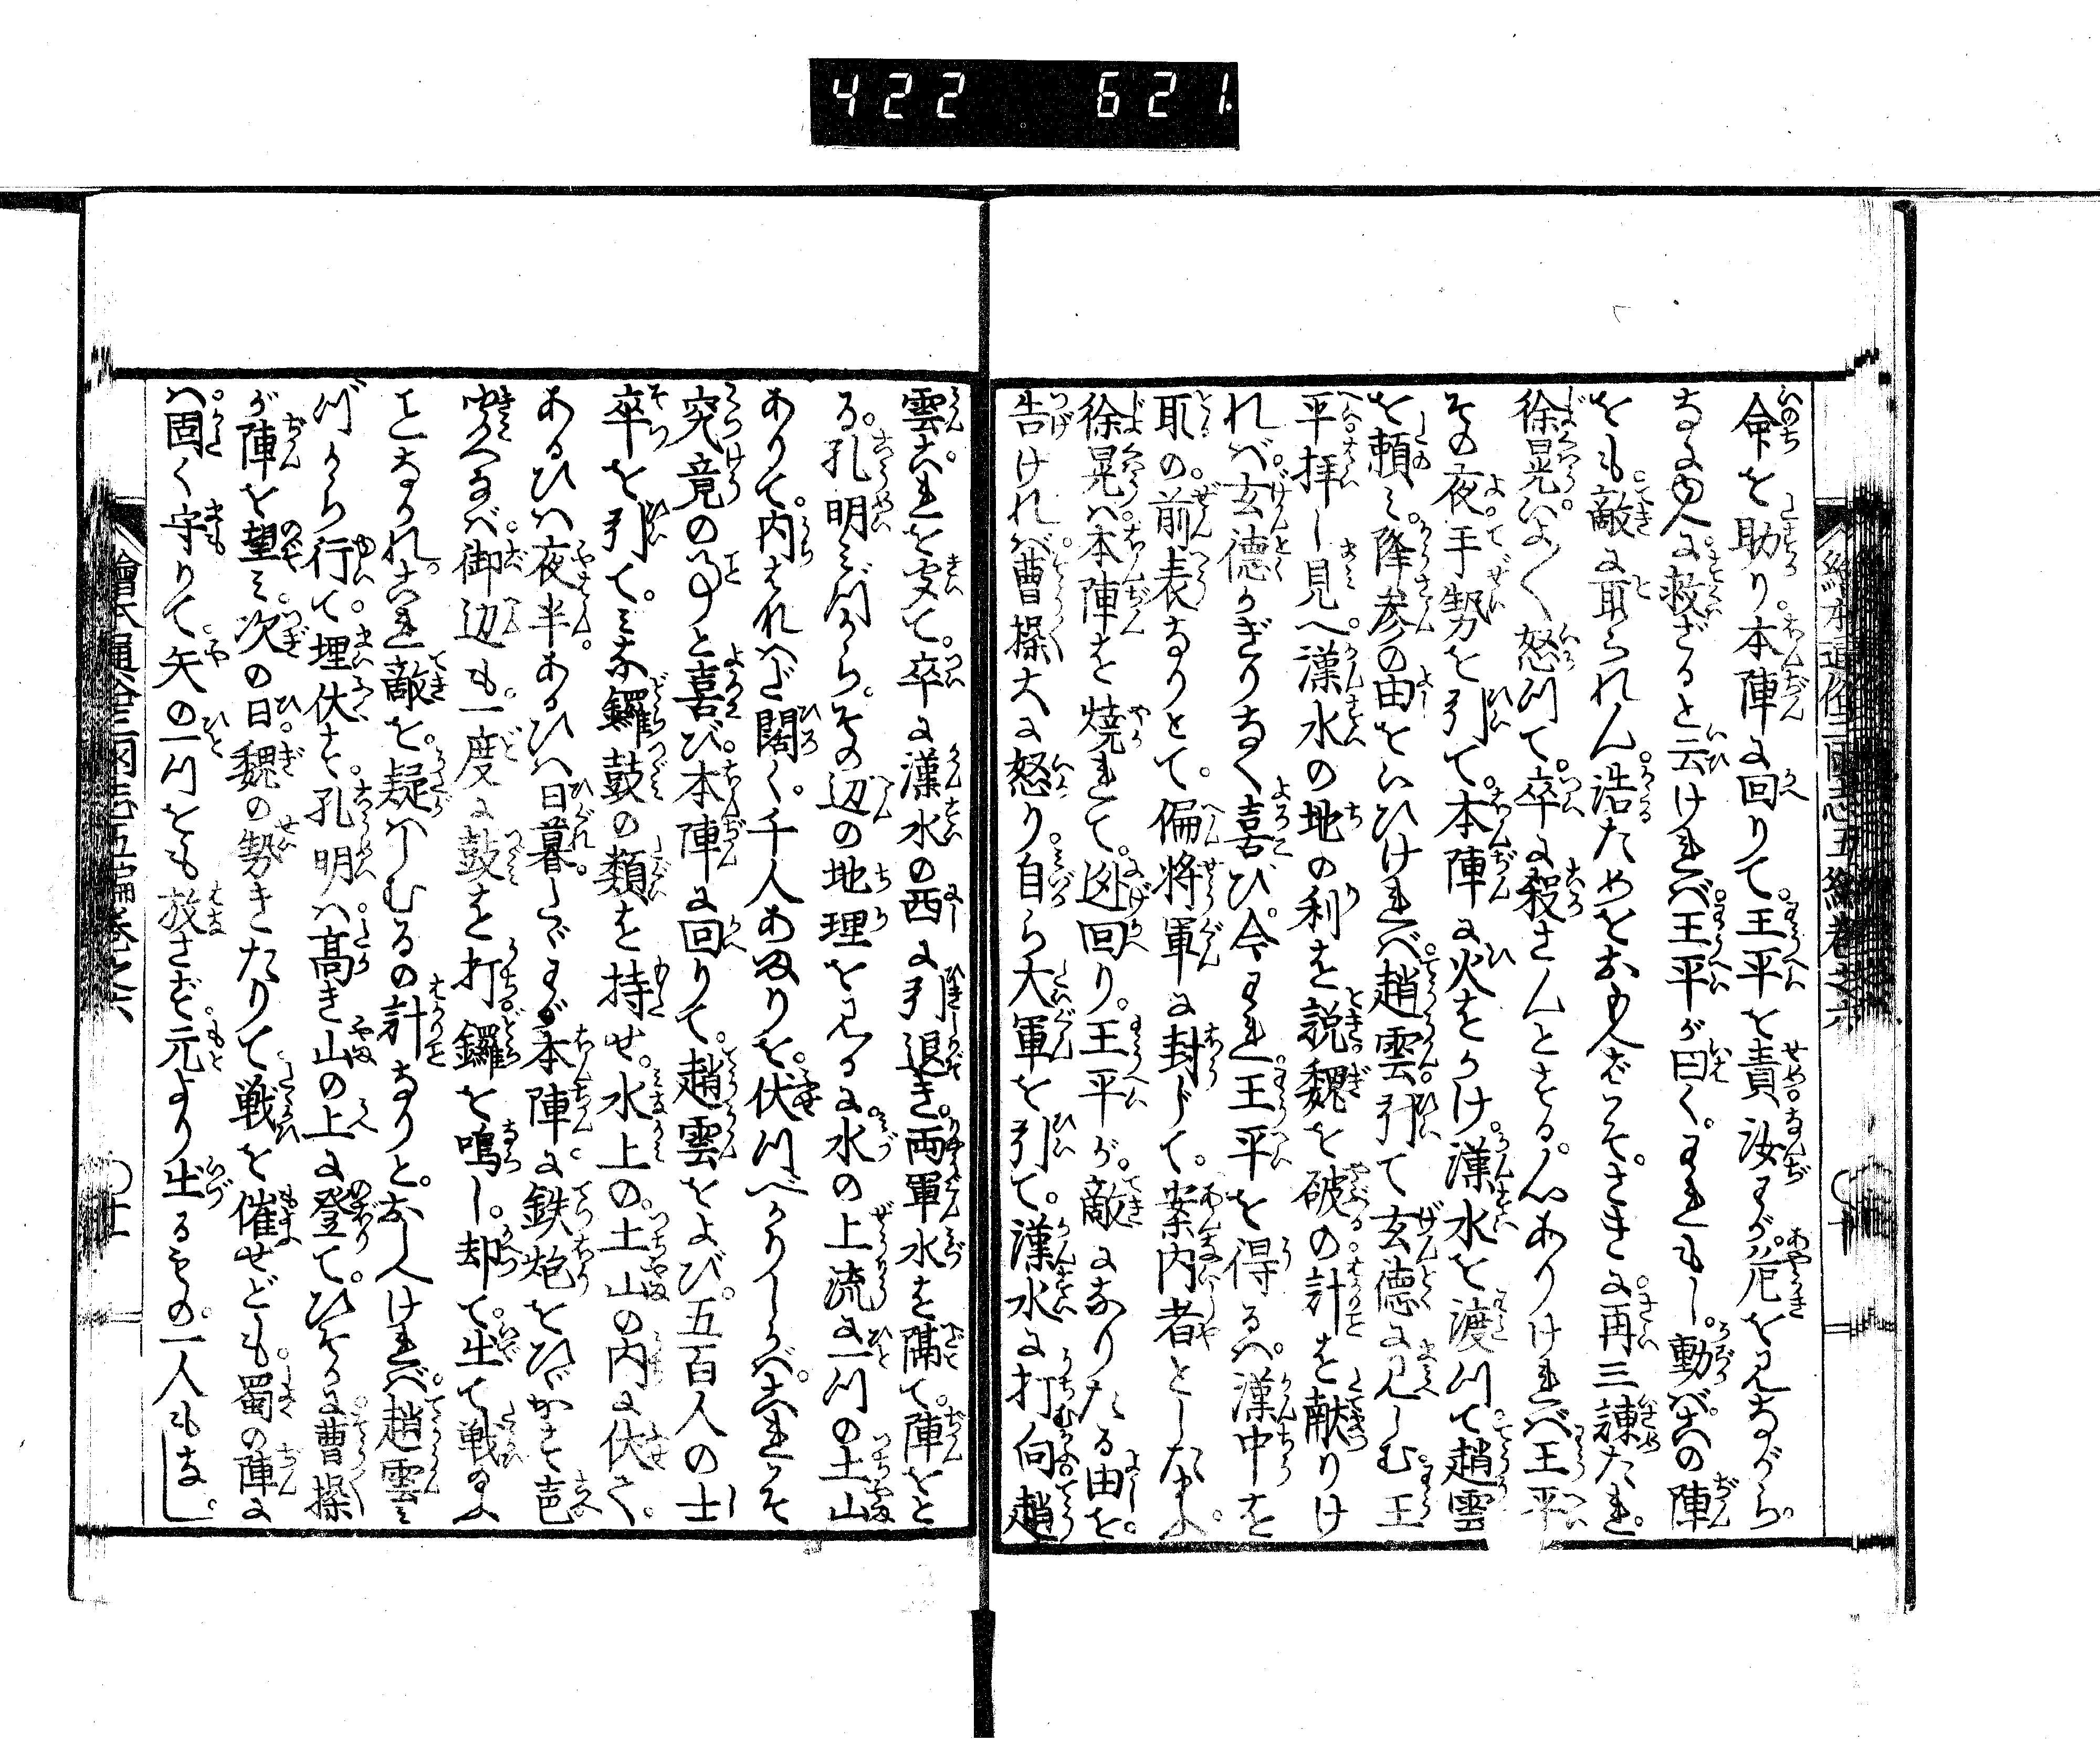 422 621
繪本通俗三國志五編卷之六
命を助り。本陣に回りて。王平を責。汝わが危を見ながら。
なに由へに救ざると云ければ。王平が曰く。われもし。動かば此の陣
をも。敵に取られん。浩ためをおもへばこそ。さきに。再三諌たれ。
徐晃いよ〳〵怒つて。卒に殺さんとする。心ありければ王平
その夜。手勢を引て。本陣に火をかけ。漢水を渡つて趙雲
を頼み。降参の由をいひければ。趙雲。引て玄徳に見しむ。王
平拝し見へ。漢水の地の利を説。魏を破の。計を献りけ
れば。玄徳かぎりなく喜び。今われ。王平を得るへ。漢中を
取の。前表なりとて。偏将軍に封じて。案内者としたまふ。
徐晃は。本陣を焼れて。迯回り。王平が。敵になりたる由を。
告ければ。曹操大に怒り。自ら大軍を引て。漢水に打向。趙
雲。これを支て。卒に漢水の西に引退き。両軍水を隔て。陣をと
る。孔明みづから。その辺の地理を見るに。水の上流に一つの土山
ありて。内はなはだ闊く。千人あまりを。伏つべかりしかば。これこそ
究竟の事と喜び。本陣に回りて。趙雲をよび。五百人の士
卒を引て。みな鑼鼓の類を持せ。水上の。土山の内に伏て。
あるひは夜半。あるひは日暮。しばわが本陣に鉄炮をひゞかせ声
聞へなば。御辺も。一度に鼓を打。鑼を鳴し。却て。出て戦ふ
ことなかれ。これ敵を。疑はしむるの計なりと。おしへければ。趙雲み
づから行て。埋伏す。孔明は。高き山の上に登て。ひそかに曹操
が陣を望み。次の日。魏の勢きたりて。戦を催せども。蜀の陣に
は。固く守りて。矢の一つをも放さず。元より出るもの。一人もなし。
繪本通俗三國志五編卷之六
〇十一